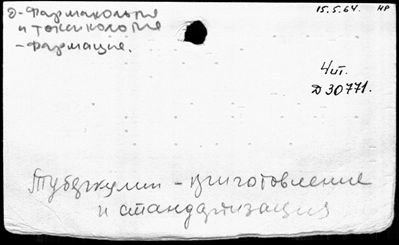 д-Фармакология
и токсикология
-фармация.
15.5.64. НР
4 шт.
Д 30771.
Туберкулин - приготовление
и стандартизация